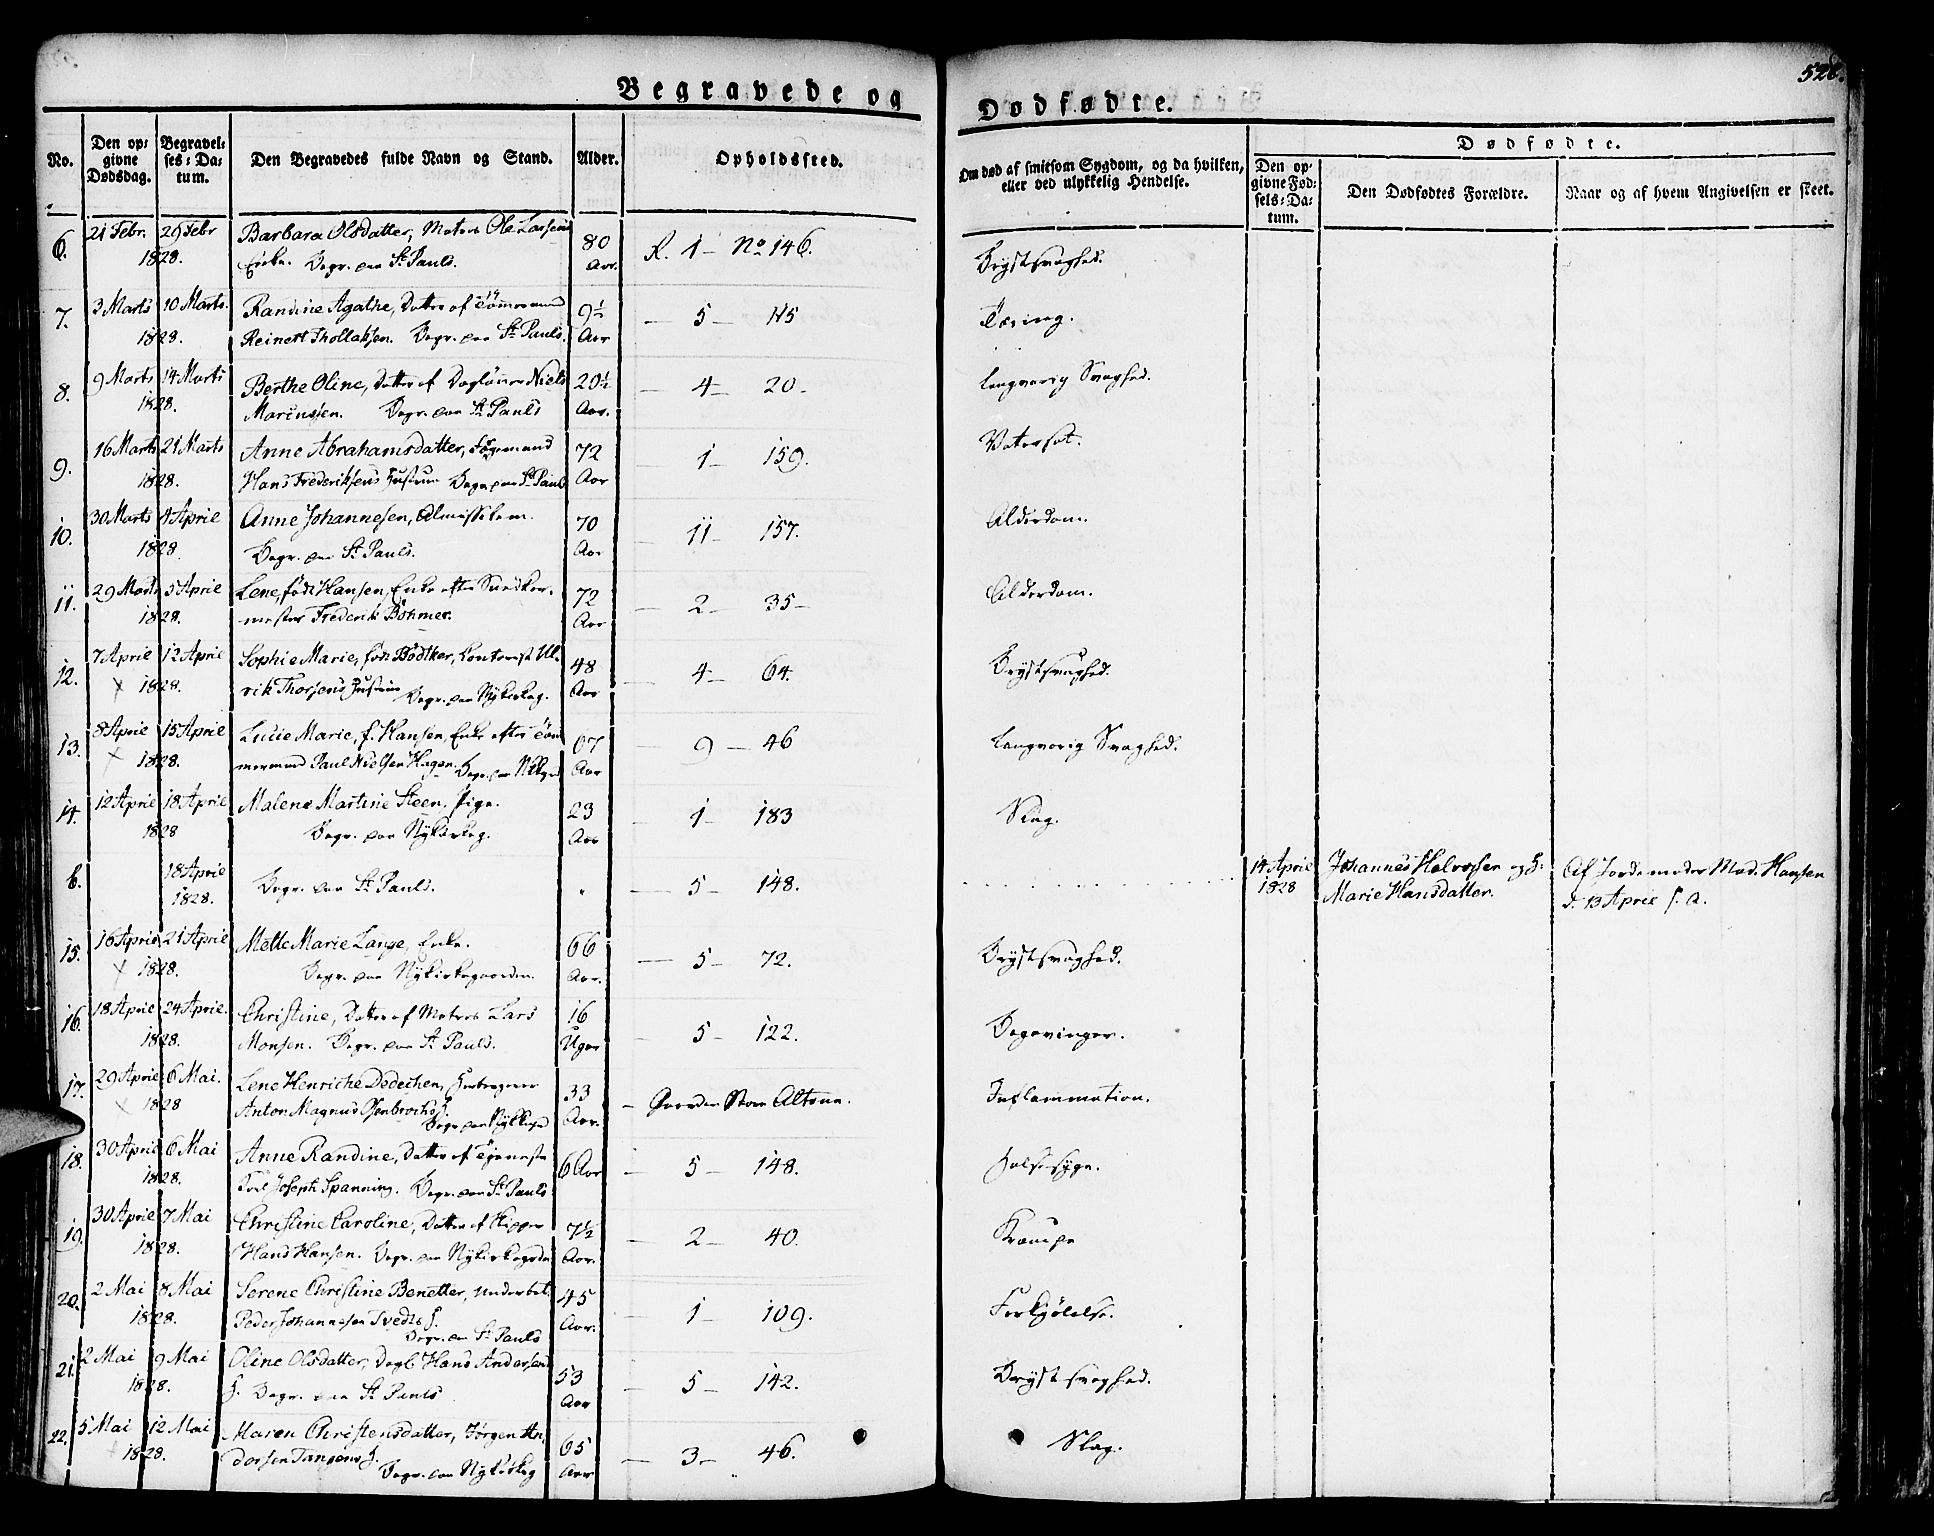 528.
Begravede og Dødfødte.
No.
Den op-
givne
Dødsdag.
Begravel-
ses-Da-
tum.
Den Begravedes fulde Navn og Stand.
Alder.
Opholdssted.
Om død af smitsom Sygdom, og da hvilken,
eller ved ulykkelig Hendelse.
Dødfødte.
Den op-
givne Fød-
sels-Da-
tum.
Den Dødfødtes Forældre.
Naar og af hvem Angivelsen er skeet.
6. 21 Febr. 29 Febr Barbara Olsdatter, Matros Ole Larsens 80 R. 1 – No 146. Brystsvaghed.
1828. Enke. Begr. paa St. Pauls. Aar.
7. 3 Marts 10 Marts. Randine Agathe, Datter af Tømmermand 9½ – 5 – 115 Tæring.
1828. Reinert Thollaksen. Begr. paa St. Pauls. Aar
8. 9 Marts 14 Marts Berthe Oline, Datter af Daglønner Niels 20½ – 4 – 20 – Langvarig Svaghed.
1828. Marcussen. Begr. paa St. Pauls Aar.
9. 16 Marts 21 Marts Anne Abrahamsdatter, 72 – 1 – 159. Vatersot.
1828. Hans Frederiksens Hustrue Begr. paa St. Pauls Aar
10. 30 Marts 4 April Anne Johannesen, Almisselem. 70 – 11 – 157. Alderdom.
1828. Begr. paa St. Pauls. Aar
11. 29 Marts 5 April Lene, født Hansen, Enke efter Snedker- 72 – 2 – 35 – Alderdom.
1828. mester Frederik Böhmer. Aar
12. 7 April 12 April Sophie Marie, født Bødtker, Contorist Ul- 48 – 4 – 64. Brystsvaghed.
1828. rik Thorsens Hustrue Begr. paa Nykirkeg. Aar
13. 8 April 15 April Lucie Marie, f. Hansen, Enke efter Töm 67 – 9 – 46 Langvarig Svaghed.
1828. mermand Paul Nielsen Hagen. Begr. paa Aar
14. 12 April 18 April Malene Martine Steen, Pige. 23 – 1 – 183 Slag.
1828 Begr. paa Nykirkeg. Aar
6. 18 April Begr. paa St. Pauls. " – 5 – 148. 14 April Johannes Halvorsen og H: Af Jordemoder Mad. Hansen
1828. 1828 Marie Hansdatter. d. 13 April s. A.
15. 16 April 21 April Mette Marie Lange, Enke. 66 – 5 – 72. Brystsvaghed.
1828. Begr. paa Nykirkegaarden. Aar.
16. 18 April 24 April. Christine, Datter af Matros Lars 16 – 5 – 122. Begavinger.
1828. Monsen. Begr. paa St. Pauls. Uger
17. 29 April 6 Mai. Lene Henriche Dedechen, 33 – Gaarden Store Altona. Inflammation.
1828 Anton Magnus H. Begr. paa Aar.
18. 30 April 6 Mai Anne Randine, Datter af Tjeneste 6 Aar – 5 – 148. Halssyge.
1828. Karl Joseph Spanning. Begr. paa St. Pauls
19. 30 April 7 Mai Christine Caroline, Datter af Skipper 7½ – 2 – 40. Krampe
1828. Hans Hansen. Begr. paa Nykirkegrdn. Aar.
20. 2 Mai 8 Mai Serene Christine Benetter, Underbet. 45 – 1 – 109. Forkjølelse.
1828. Peder Johannesen Tvedts H. Begr. paa St. Pauls Aar.
21. 2 Mai 9 Mai Oline Olsdatter, Dagl. Hans Andersens 53 – 5 – 142. Brystsvaghed.
1828. H. Begr. paa St. Pauls Aar
22. 5 Mai 12 Mai Maren Christensdatter, Jørgen An- 65 – 3 – 46. Slag.
1828. dersen Tangens H. Begr. paa Nykirkeg Aar